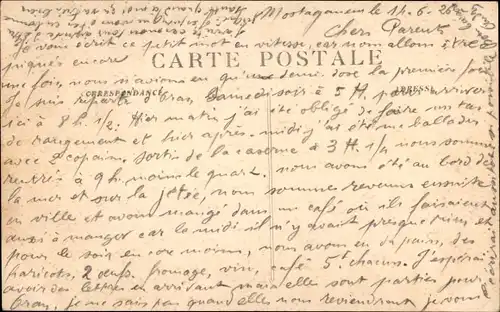 Mostaganem le 14-6-26
Chers Parents
Je vous écrit ce petit mot en vitesse, car nous allons être
piqués encore
CARTE POSTALE
fois, nous n'avions eu qu'une demi dose la première fois
CORRESPONDANCE
ADRESSE
Je suis reparti d'Oran Samedi soir à 5 H. pour arriver
ici à 8 h. 1/2. Hier matin j'ai été obligé de faire un tas
de rangement et hier après-midi j'ai été me ballader
avec 2 copains. Sortis de la caserne à 3 H. 1/4 nous sommes
rentrés à 9 h. moins le quart. nous avons été au bord de
la mer et sur la jetée, nous sommes revenus ensuite
en ville et avons mangé dans un café où ils faisaient
aussi à manger car le midi il n'y avait presque rien, et
pour le soir encore moins, nous avons eu du pain, des
haricots, 2 œufs, fromage, vin, café 5f chacun. J'espérais
avoir des lettres en arrivant mais elles sont parties pour
Oran, je ne sais pas quand elles reviendront je vous